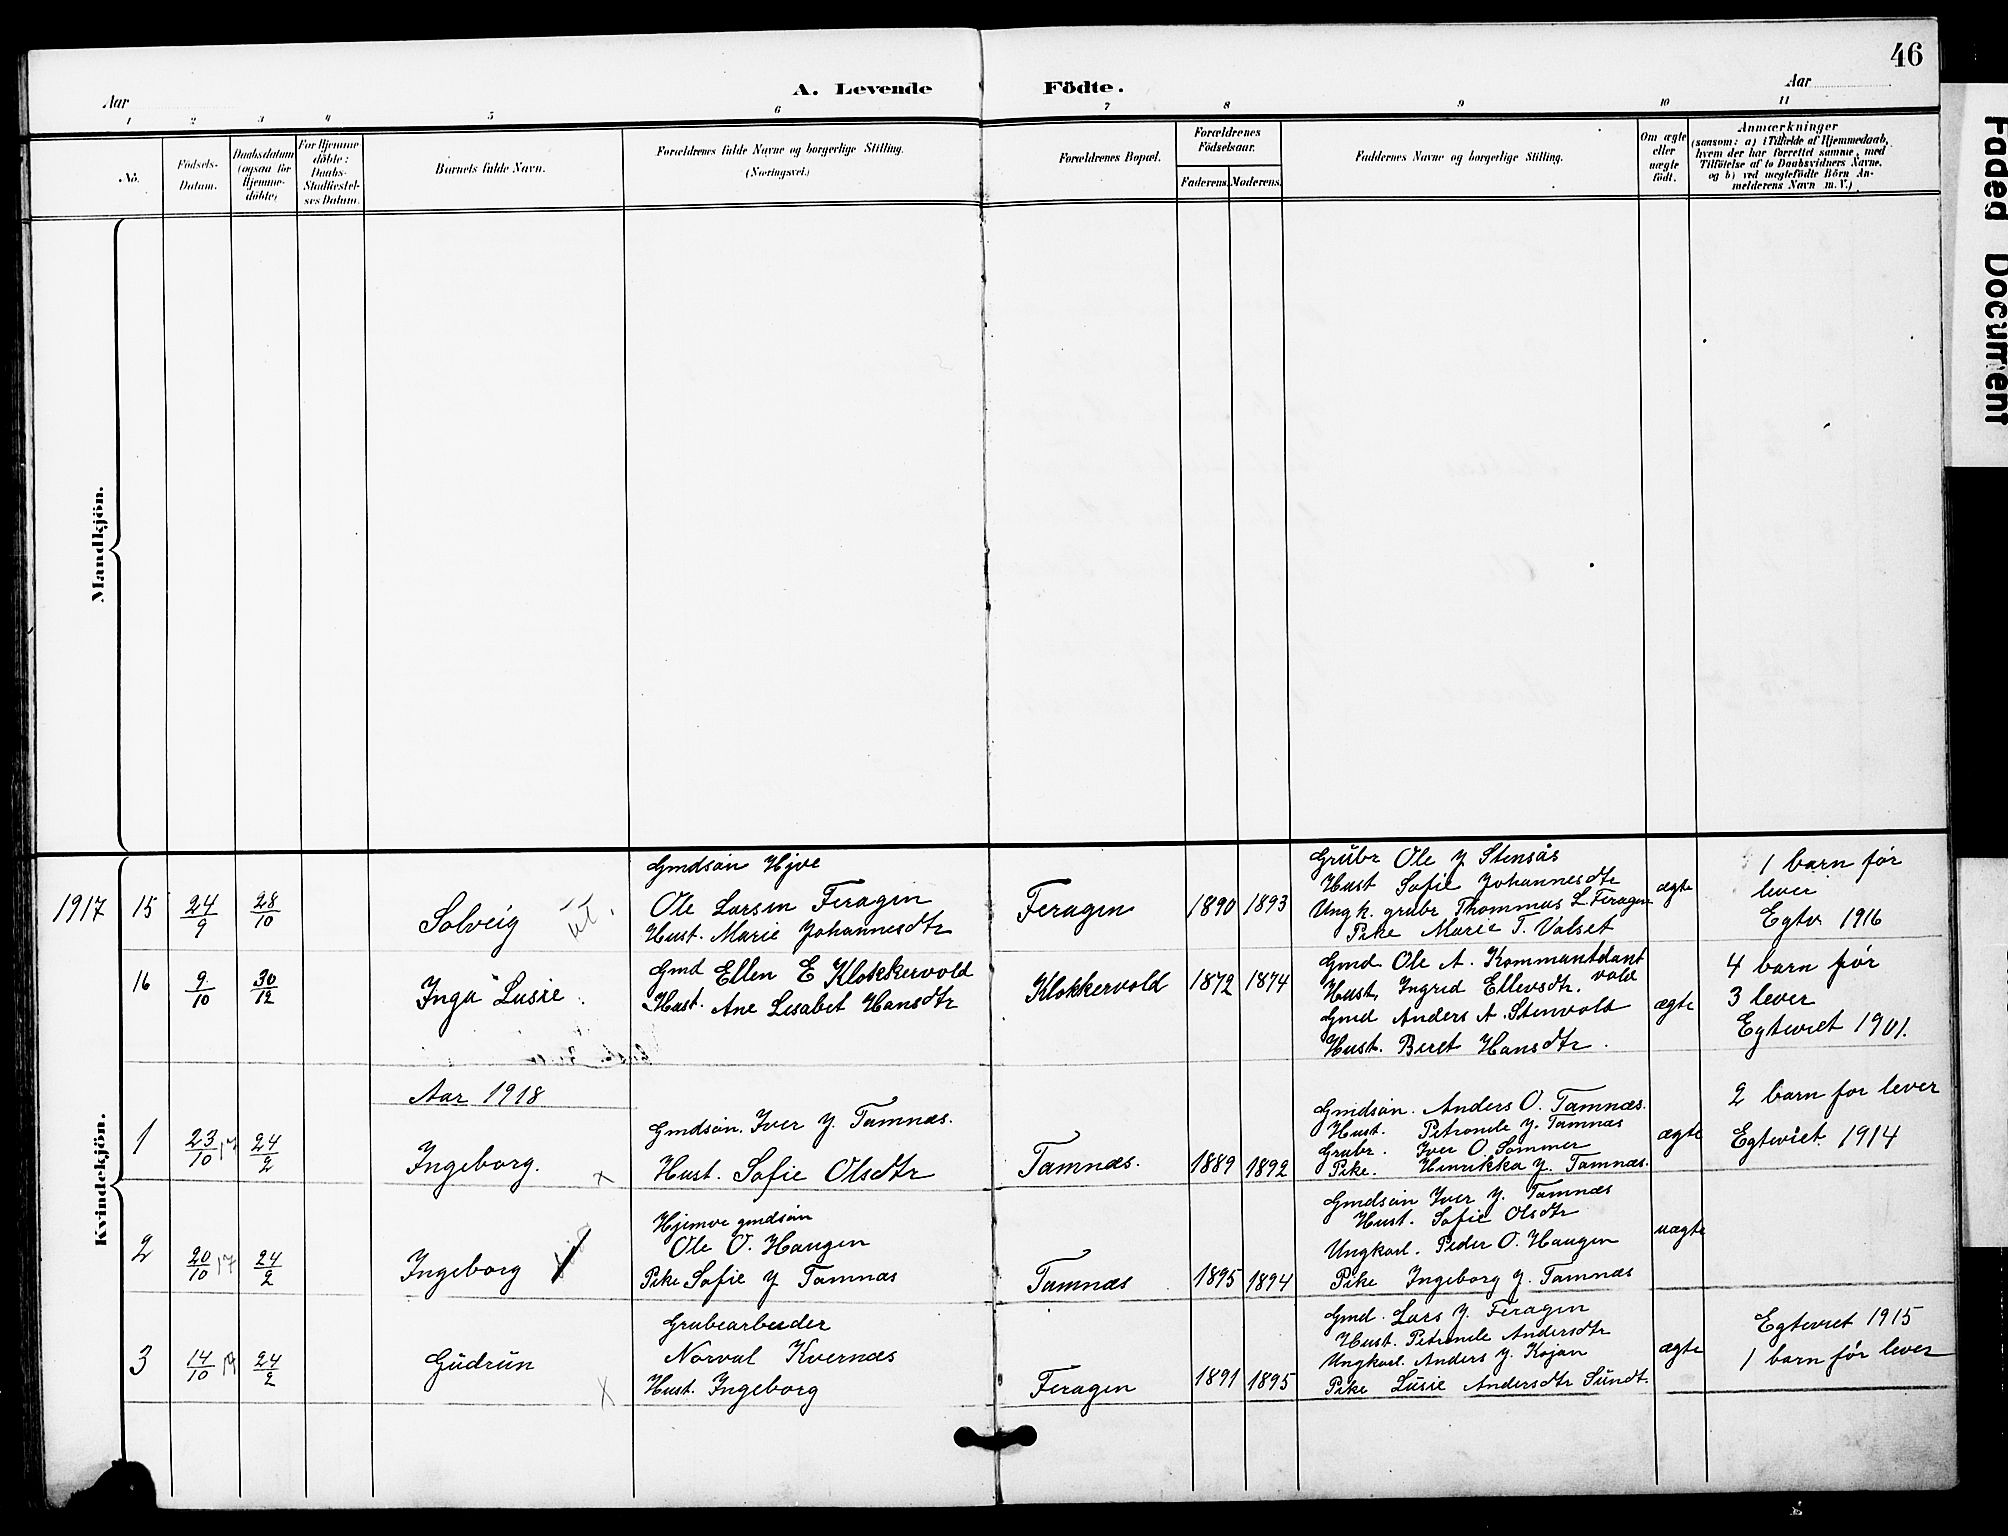 46
A. Levende Födte.
Aar
Aar
1 2 3 4 5 6 7 8 9 10 11
No.
Födsels-
Datum.
Daabsdatum
(ogsaa for
Hjemme-
döbte)
For Hjemme
döbte:
Daabs-
Stadfæstel-
ses Datum.
Barnets fulde Navn.
Forældrenes fulde Navne og borgerlige Stilling.
(Næringsvei.)
Forældrenes Bopæl.
Forældrenes
Födselsaar.
Faderens. Moderens.
Faddernes Navne og borgerlige Stilling.
Om ægte
eller
uægte
födt.
Anmærkninger
(saasom: a) i Tilfælde af Hjemmedaab,
hvem der har forrettet samme, med
Tilföielse af to Daabsvidners Navne,
og b) ved uægtefödte Börn An-
melderens Navn m. V.)
Mandkjön.
Kvindekjön.
1917
15
24/9
28/10
Solveig
Gmdsøn Hjve
Ole Larsen Feragen
Hust. Marie Johannesdtr
Feragen
1890 1893
Grubr Ole J Stensås
Hust Sofie Johannesdtr
Ung k. grubr Thommas L. Feragen
Pike Marie T. Valset
ægte
1 barn før
lever
Egtv 1916
16
9/10
30/12
Inga Lusie
Gmd Ellen E Klokkervold
Hust. Ane Lisabet Hansdtr
Klokkervold
1872 1874
Gmd Ole A. Kommantdant
vold
Hust, Ingrid Ellevsdtr.
Gmd Anders A. Stenvold
Hust. Beret Hansdtr.
ægte
4 barn før
3 lever
Egteviet 1901.
Aar 1918
1
23/10 17
24/2
Ingeborg.
x
Gmdsøn. Iver J. Tamnæs.
Hust. Sofie Olsdtr
Tamnæs.
1889 1892
Gmdsøn. Anders O. Tamnæs.
Hust. Petronele J. Tamnæs
Grubr. Iver O. Sommer
Pike. Henrikka J. Tamnæs.
ægte
2 barn før lever
Egteviet 1914
2
20/10 17
24/2
Ingeborg
Hjemve gmdsøn
Ole O. Haugen
Pike Sofie J Tamnæs
Tamnæs
1895 1894
Gmdsøn Iver J. Tamnæs
Hust. Sofie Olsdtr
Ungkarl. Peder O. Haugen
Pike Ingeborg J. Tamnæs
uægte
3
14/10 17
24/2
Gudrun
x
Grubearbeider
Norval Kvernæs
Hust. Ingeborg
Feragen
1891 1895
Gmd. Lars J. Feragen
Hust. Petronele Andersdtr
Ungkarl. Anders J. Kojan
Pike Lusie Andersdtr Sundt.
ægte
Egteviet 1915
1 barn før lever
Faded Document